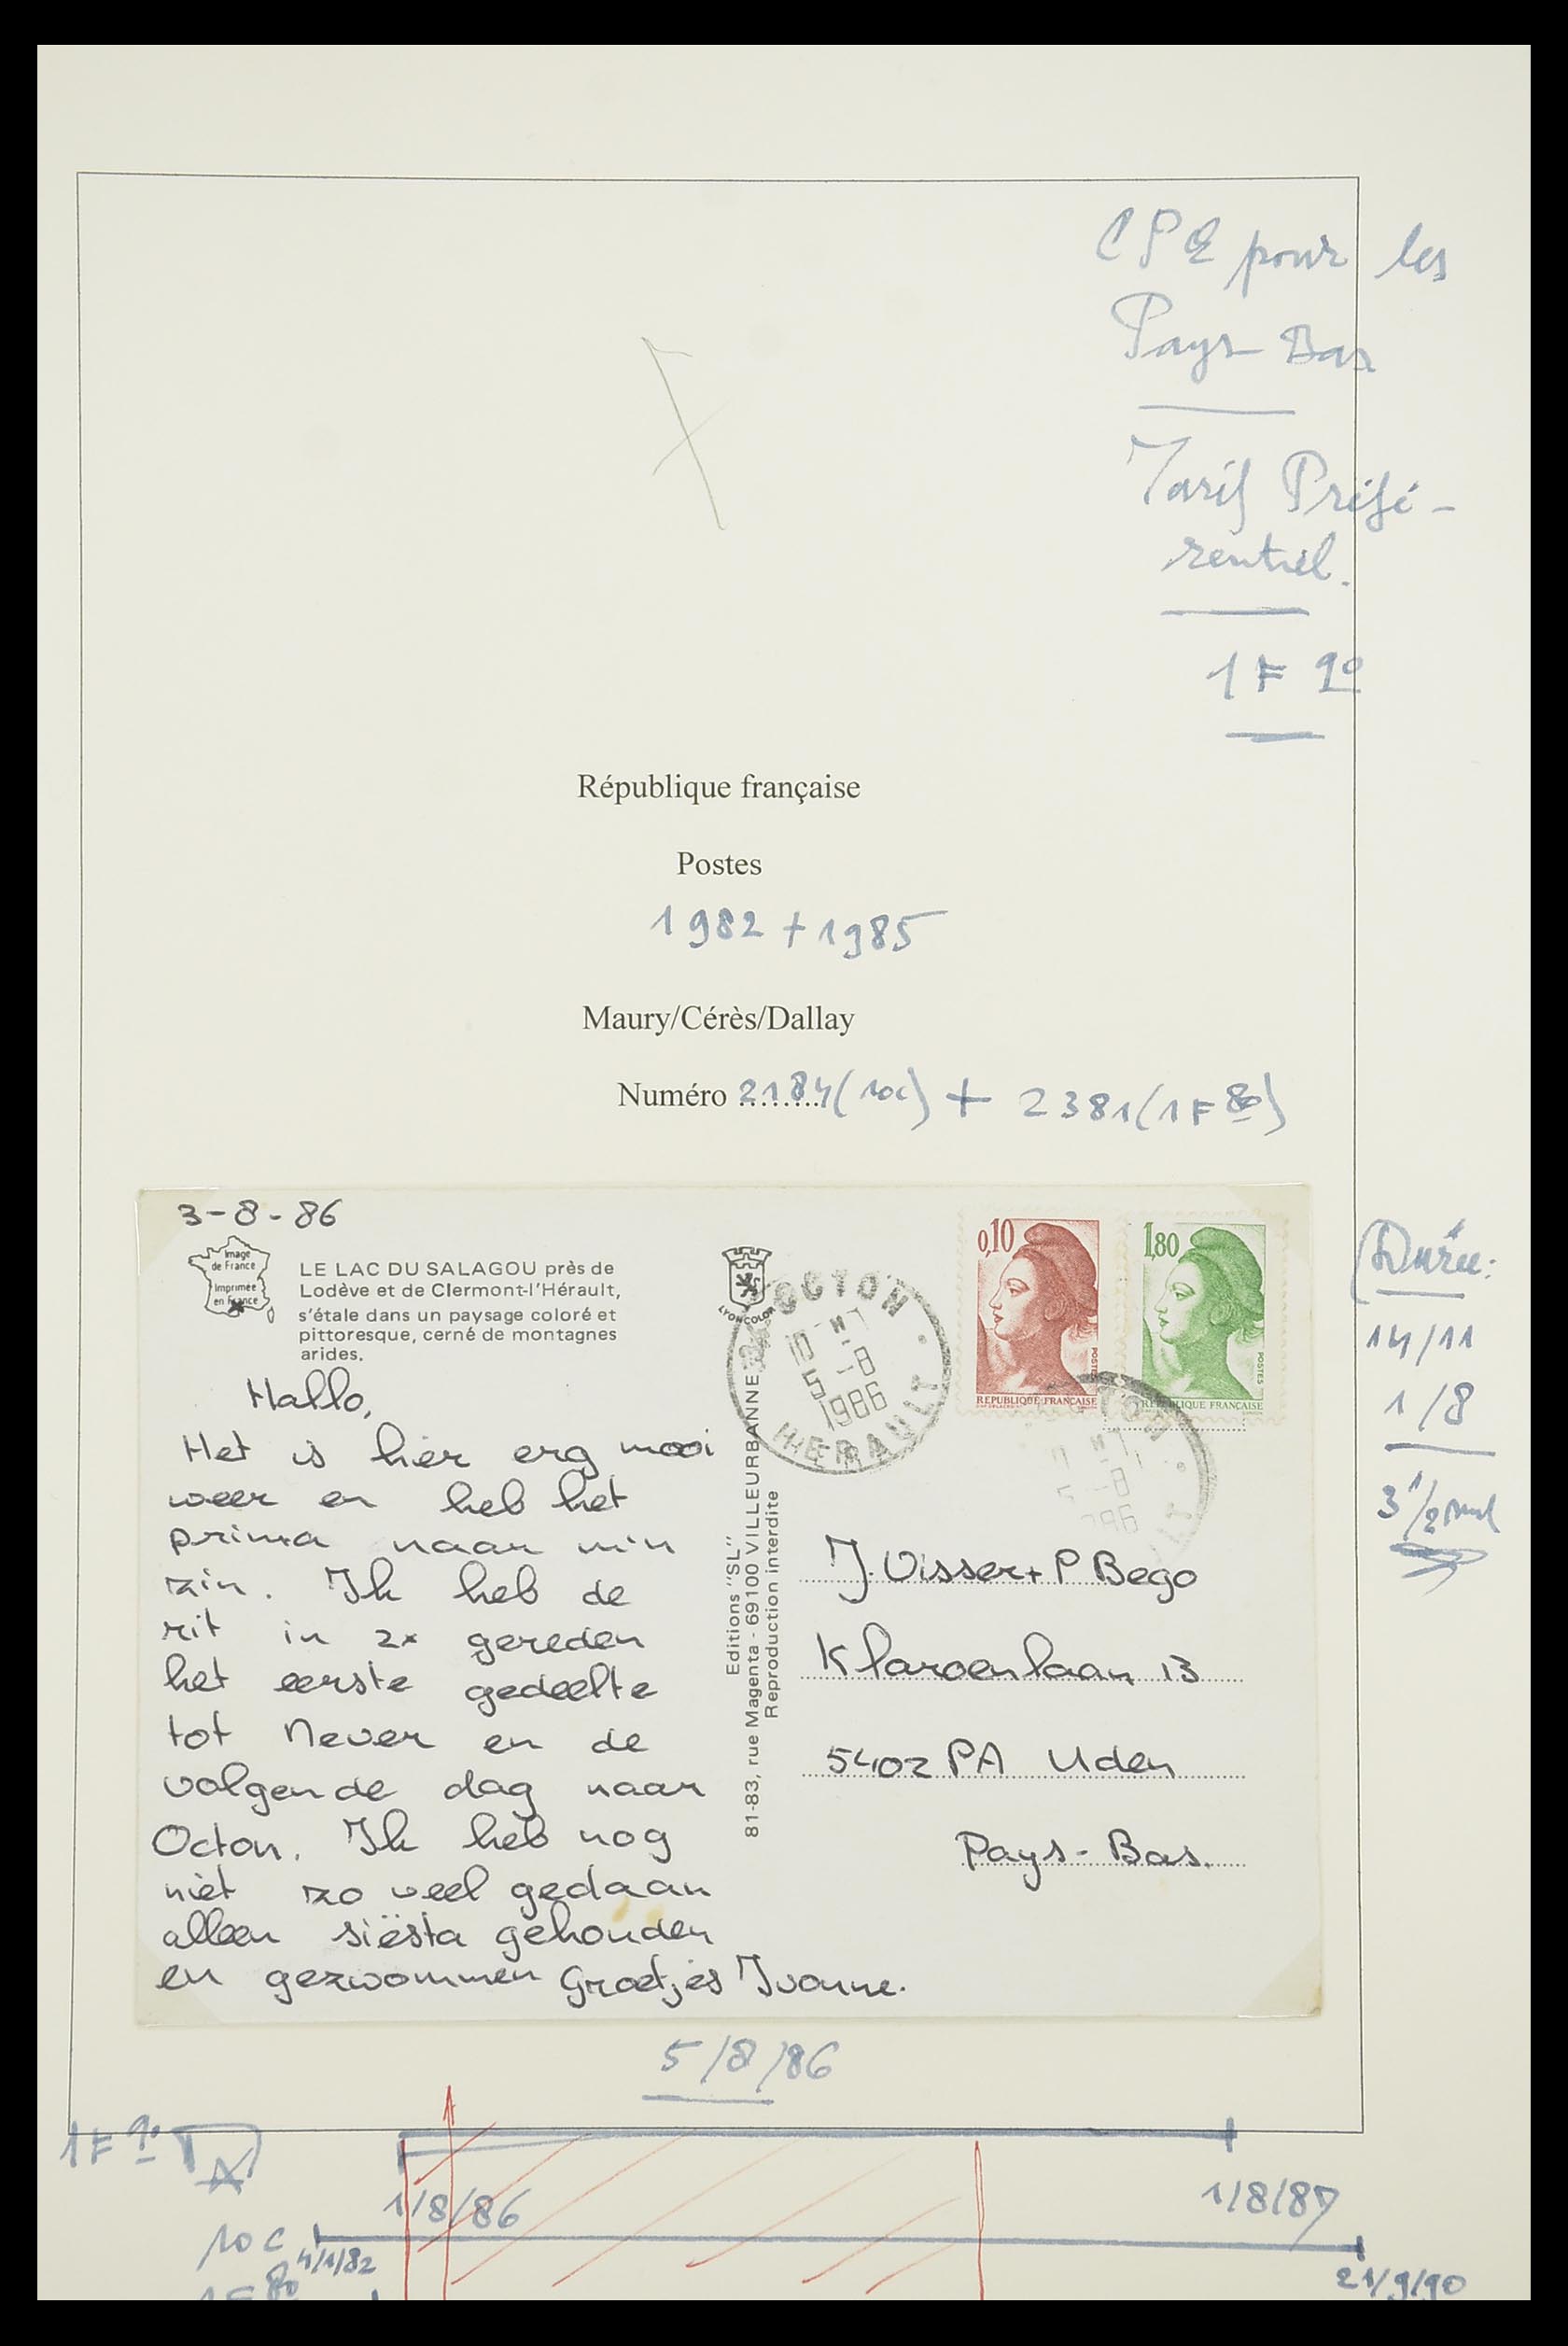 CPE pour les
Pays-Bas
Tarif Préfé-
rentiel.
1F 90
République française
Postes
1982 + 1985
Maury/Cérès/Dallay
Numéro ........ 2184 (10c) + 2381 (1F 80)
3-8-86
Image
de France
Imprimée
en France
LE LAC DU SALAGOU près de
Lodève et de Clermont-l'Hérault,
s'étale dans un paysage coloré et
pittoresque, cerné de montagnes
arides.
Hallo,
Het is hier erg mooi
weer en heb het
prima naar min
zin. Ik heb de
rit in 2x gereden
het eerste gedeelte
tot Never en de
volgende dag naar
Octon. Ik heb nog
niet zo veel gedaan
alleen siësta gehouden
en gezwommen Groetjes Ivonne.
LYON COLOR
Editions "SL"
81-83, rue Magenta - 69100 VILLEURBANNE
Reproduction interdite
OCTON
5 -8
1986
HERAULT
0,10
POSTES
REPUBLIQUE FRANÇAISE
1,80
POSTES
REPUBLIQUE FRANÇAISE
5 -8
J. Visser + P Bego
Klaroenlaan 13
5402 PA Uden
Pays-Bas.
Durée:
14/11
1/8
3 1/2
5/8/86
1F 90
1/8/86
1/8/87
10 c
4/1/82
21/9/90
1F 80